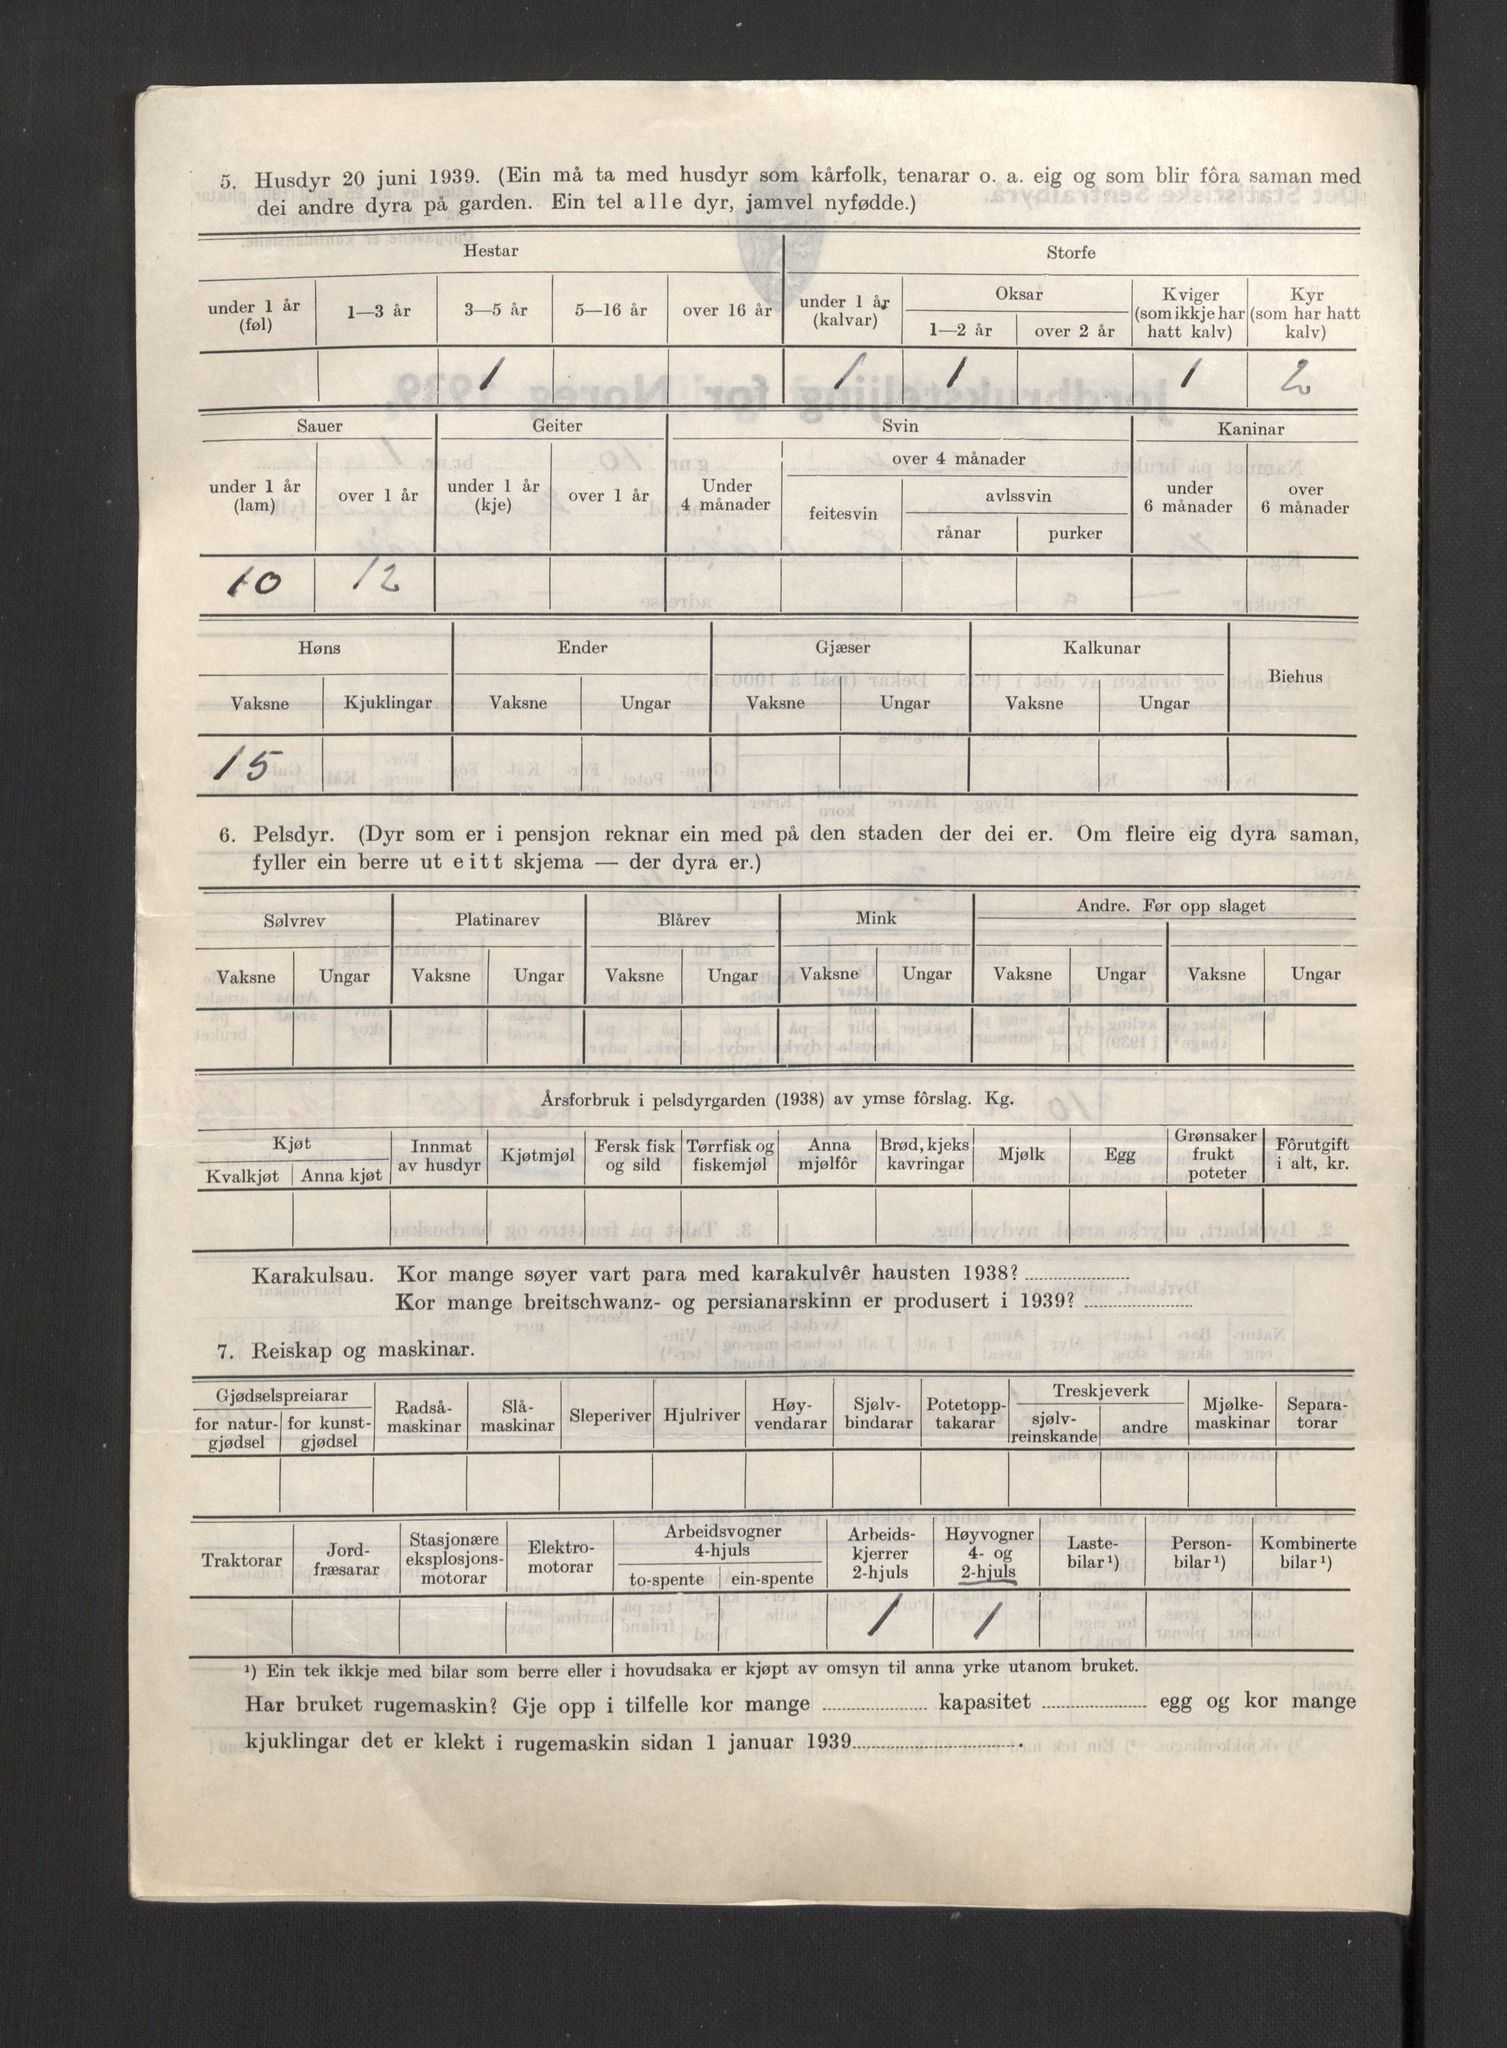 5. Husdyr 20 juni 1939. (Ein må ta med husdyr som kårfolk, tenarar o. a. eig og som blir fôra saman med
dei andre dyra på garden. Ein tel alle dyr, jamvel nyfødde.)
Hestar Storfe
under 1 år (føl) 1—3 år 3—5 år 5—16 år over 16 år under 1 år (kalvar) Oksar 1—2 år over 2 år Kviger (som ikkje har hatt kalv) Kyr (som har hatt kalv)
1 1 1 1 2
Sauer Geiter Svin Kaninar
under 1 år (lam) over 1 år under 1 år (kje) over 1 år Under 4 månader over 4 månader feitesvin avlssvin rånar purker under 6 månader over 6 månader
10 12
Høns Ender Gjæser Kalkunar Biehus
Vaksne Kjuklingar Vaksne Ungar Vaksne Ungar Vaksne Ungar
15
6. Pelsdyr. (Dyr som er i pensjon reknar ein med på den staden der dei er. Om fleire eig dyra saman,
fyller ein berre ut eitt skjema — der dyra er.)
Sølvrev Platinarev Blårev Mink Andre. Før opp slaget
Vaksne Ungar Vaksne Ungar Vaksne Ungar Vaksne Ungar Vaksne Ungar Vaksne Ungar
Årsforbruk i pelsdyrgarden (1938) av ymse fôrslag. Kg.
Kjøt Kvalkjøt Anna kjøt Innmat av husdyr Kjøtmjøl Fersk fisk og sild Tørrfisk og fiskemjøl Anna mjølfôr Brød, kjeks kavringar Mjølk Egg Grønsaker frukt poteter Fôrutgift i alt, kr.
Karakulsau. Kor mange søyer vart para med karakulvêr hausten 1938?
Kor mange breitschwanz- og persianarskinn er produsert i 1939?
7. Reiskap og maskinar.
Gjødselspreiarar for natur-gjødsel for kunst-gjødsel Radså-maskinar Slå-maskinar Sleperiver Hjulriver Høy-vendarar Sjølv-bindarar Potetopp-takarar Treskjeverk sjølv-reinskande andre Mjølke-maskinar Separa-torar
Traktorar Jord-fræsarar Stasjonære eksplosjons-motorar Elektro-motorar Arbeidsvogner 4-hjuls to-spente ein-spente Arbeids-kjerrer 2-hjuls Høyvogner 4- og 2-hjuls Laste-bilar ¹) Person-bilar ¹) Kombinerte bilar ¹)
1 1
¹) Ein tek ikkje med bilar som berre eller i hovudsaka er kjøpt av omsyn til anna yrke utanom bruket.
Har bruket rugemaskin? Gje opp i tilfelle kor mange kapasitet egg og kor mange
kjuklingar det er klekt i rugemaskin sidan 1 januar 1939 .